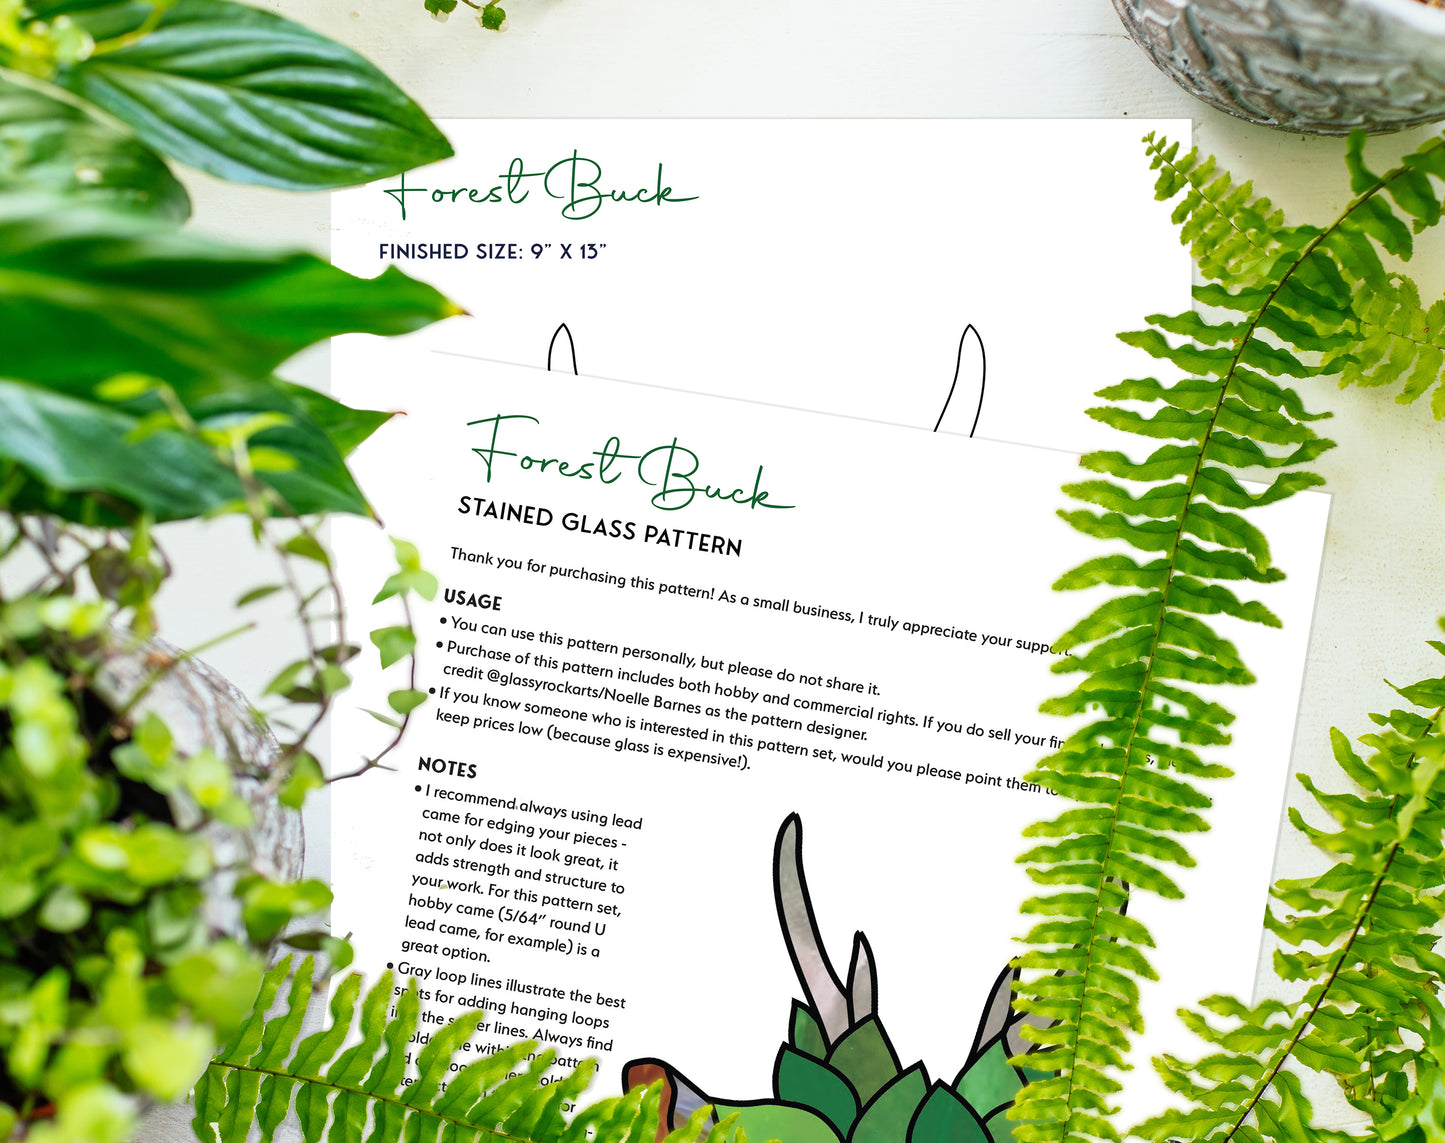 Forest Buck
FINISHED SIZE: 9" X 13"
Forest Buck
STAINED GLASS PATTERN
Thank you for purchasing this pattern! As a small business, I truly appreciate your support.
USAGE
• You can use this pattern personally, but please do not share it.
• Purchase of this pattern includes both hobby and commercial rights. If you do sell your
credit @glassyrockarts/Noelle Barnes as the pattern designer.
• If you know someone who is interested in this pattern set, would you please point them to
keep prices low (because glass is expensive!).
NOTES
• I recommend always using lead
came for edging your pieces -
not only does it look great, it
adds strength and structure to
your work. For this pattern set,
hobby came (5/64" round U
lead came, for example) is a
great option.
• Gray loop lines illustrate the best
spots for adding hanging loops
the lines. Always find
within the pattern